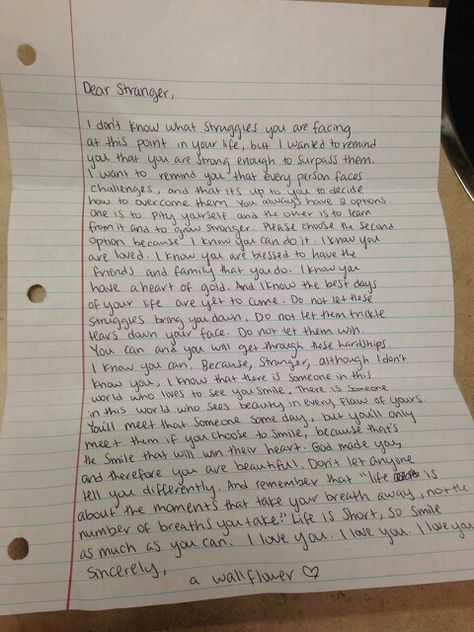 Dear Stranger,
I don't know what struggles you are facing
at this point in your life, but I wanted to remind
you that you are strong enough to surpass them.
I want to remind you that every person faces
challenges, and that its up to you to decide
how to overcome them. You always have 2 options
one is to pity yourself and the other is to learn
from it and to grow stronger. Please choose the second
option because I know you can do it. I know you
are loved. I know you are blessed to have the
friends and family that you do. I know you
have a heart of gold. And I know the best days
of your life are yet to come. Do not let these
struggles bring you down. Do not let them trickle
tears down your face. Do not let them win.
You can and you will get through these hardships
I know you can. Because, Stranger, although I don't
know you, I know that there is someone in this
world who lives to see you smile. There is someone
in this world who sees beauty in every flaw of yours.
You'll meet that someone some day, but you'll only
meet them if you choose to smile, because that's
the smile that will win their heart. God made you,
and therefore you are beautiful. Don't let anyone
tell you differently. And remember that "life is
about the moments that take your breath away, not the
number of breaths you take." Life is short, so smile
as much as you can. I love you. I love you. I love you
Sincerely, a wallflower ♡